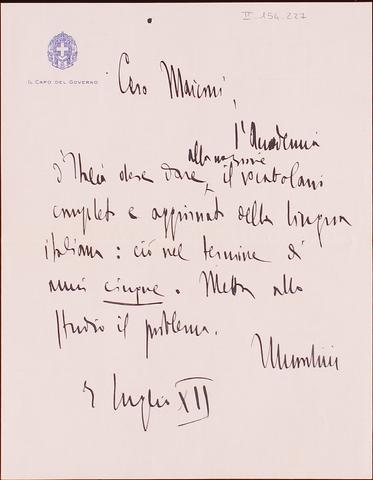 II 154.227
IL CAPO DEL GOVERNO
Caro Marconi,
l'Accademia
d'Italia deve dare alla nazione il vocabolario
completo e aggiornato della lingua
italiana: ciò nel termine di
anni cinque. Metta allo
studio il problema.
Mussolini
5 luglio XII